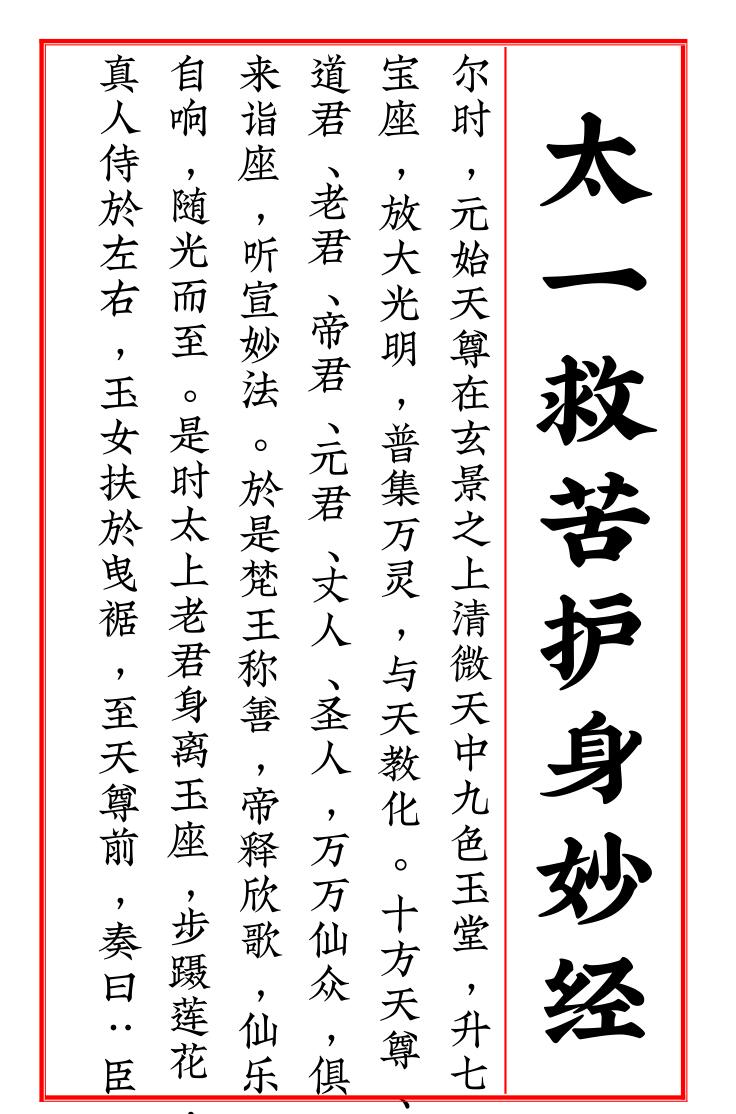 太一救苦护身妙经
尔时，元始天尊在玄景之上清微天中九色玉堂，升七
宝座，放大光明，普集万灵，与天教化。十方天尊、
道君、老君、帝君、元君、丈人、圣人，万万仙众，俱
来诣座，听宣妙法。於是梵王称善，帝释欣歌，仙乐
自响，随光而至。是时太上老君身离玉座，步蹑莲花，
真人侍於左右，玉女扶於曳裾，至天尊前，奏曰：臣